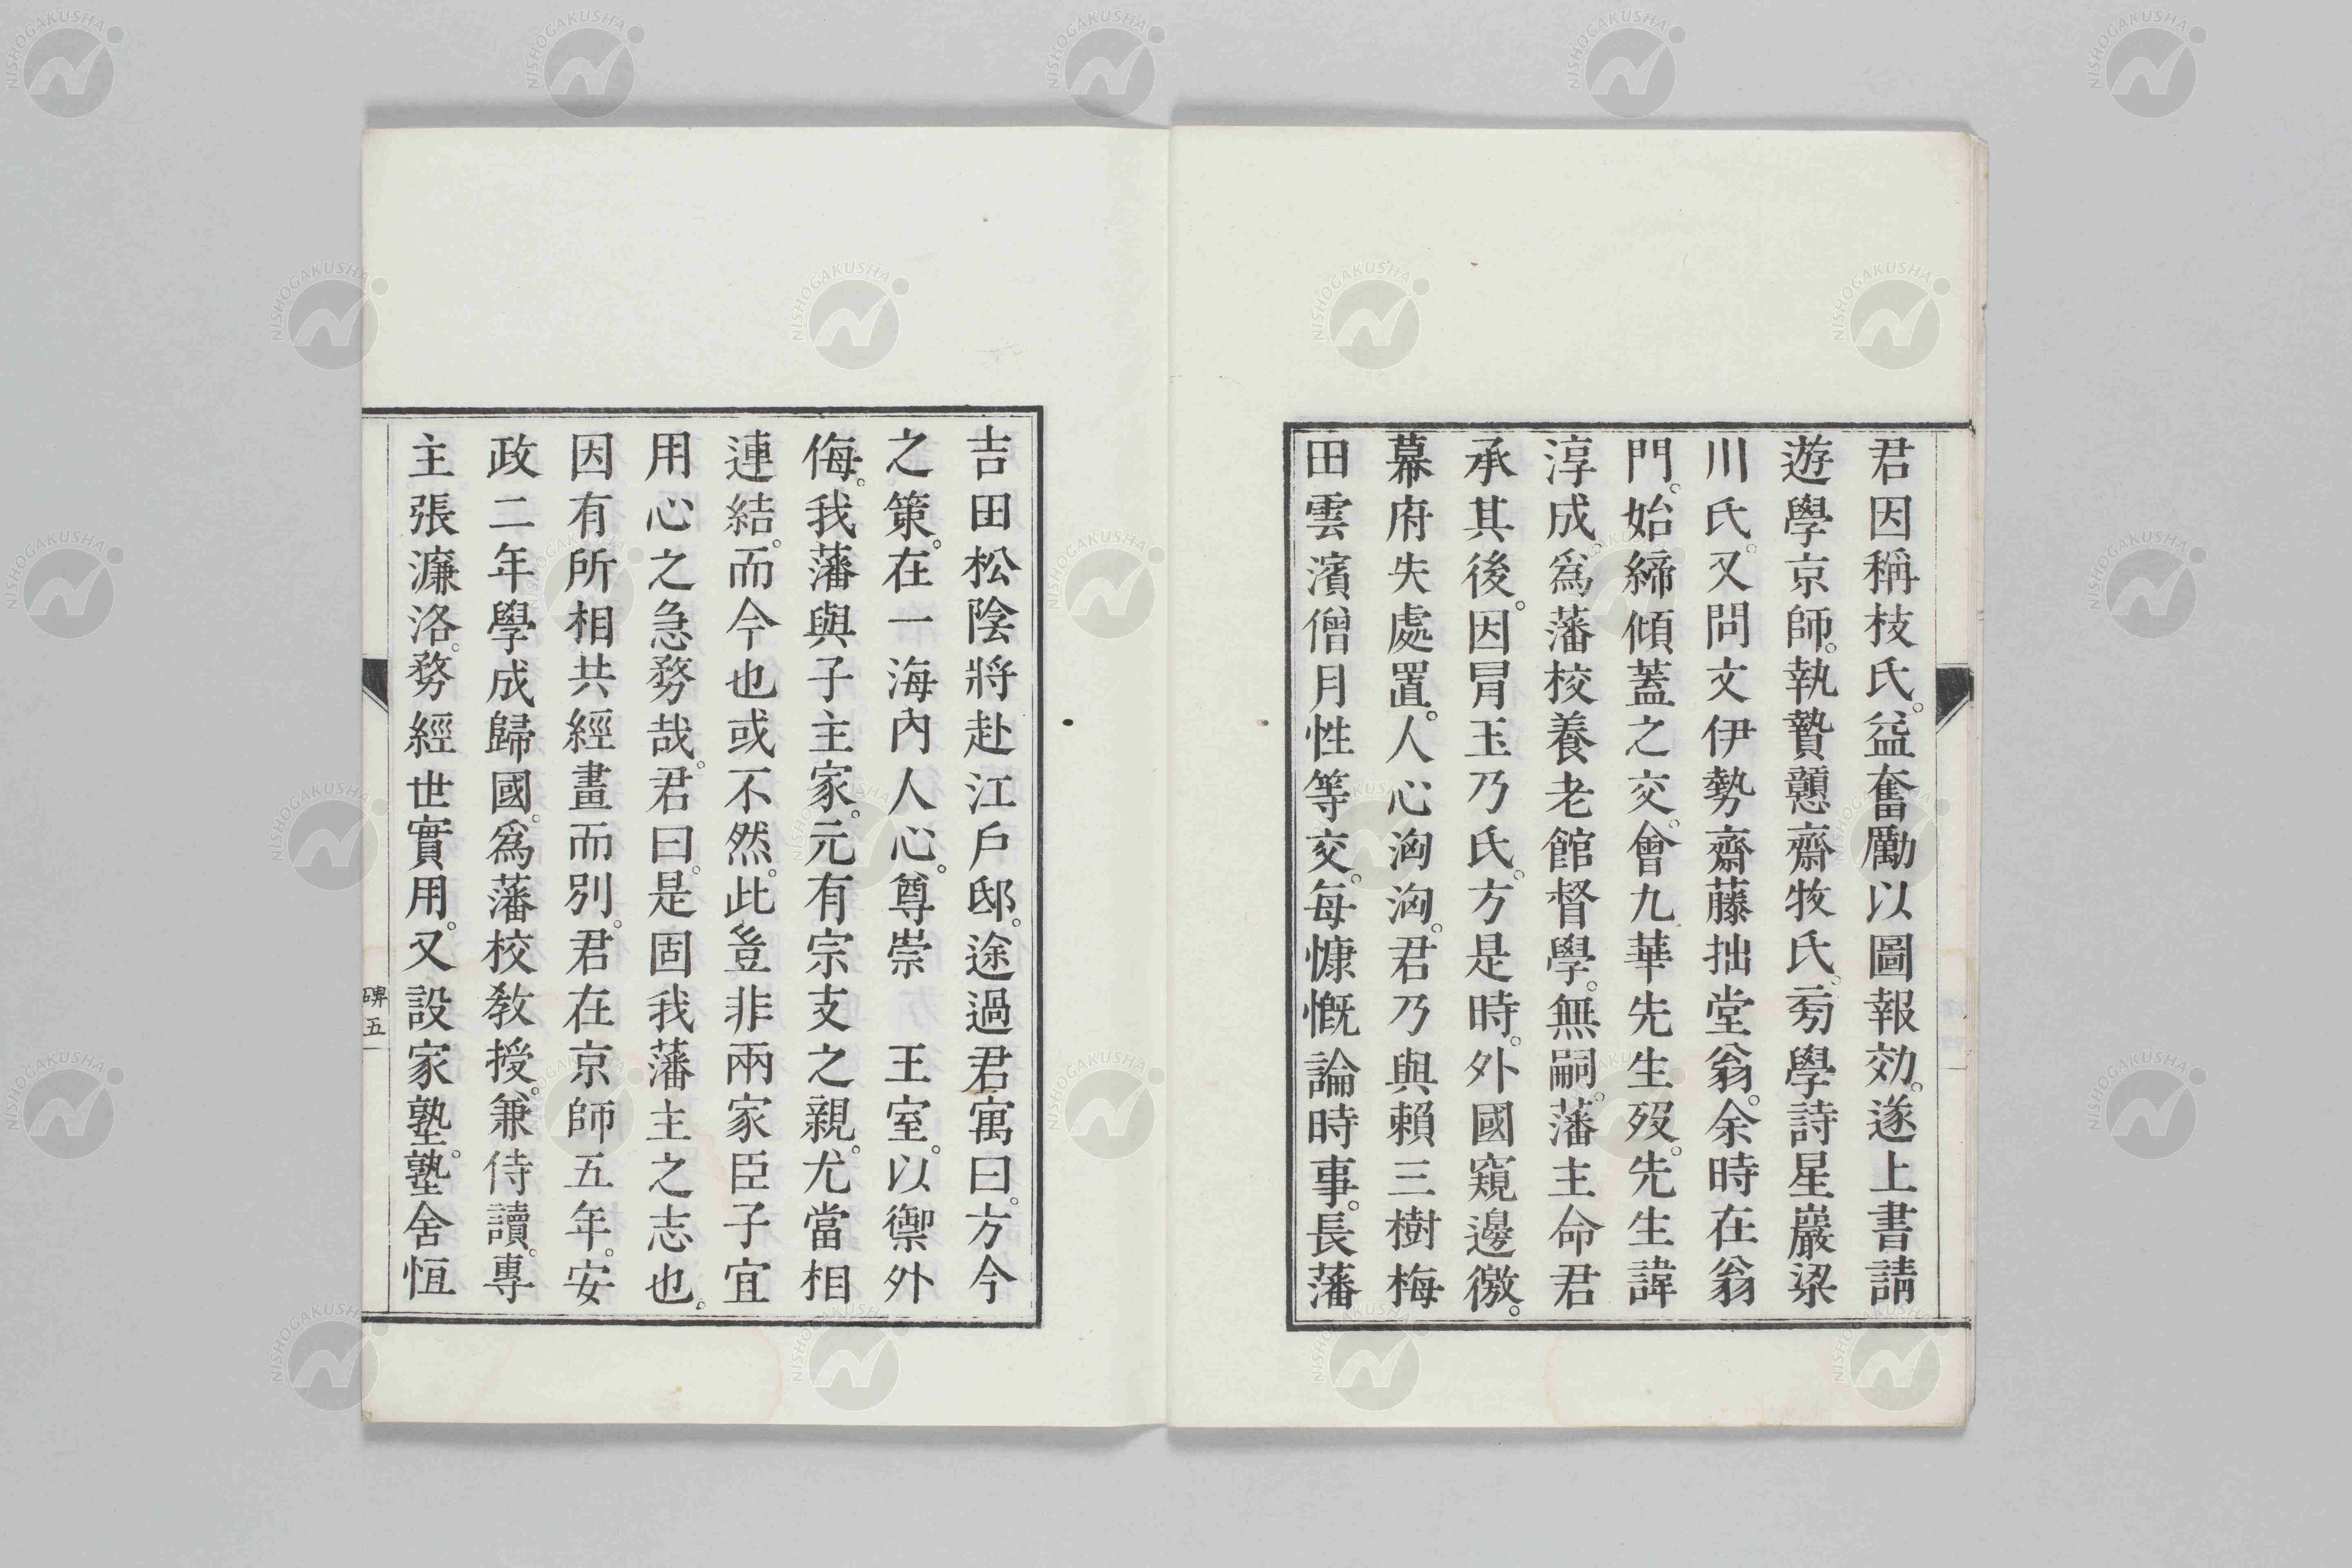 君因稱枝氏。益奮勵以圖報効。遂上書請
遊學京師。執贄戇齋牧氏。旁學詩星巖梁
川氏。又問文伊勢齋藤拙堂翁。余時在翁
門。始締傾蓋之交。會九華先生歿。先生諱
淳成。爲藩校養老館督學。無嗣。藩主命君
承其後。因冐玉乃氏。方是時。外國窺邊徼。
幕府失處置。人心洶洶。君乃與賴三樹梅
田雲濱僧月性等交。每慷慨論時事。長藩
吉田松陰將赴江戶邸。途過君寓曰。方今
之策。在一海內人心。尊崇　王室。以禦外
侮。我藩與子主家。元有宗支之親。尤當相
連結。而今也或不然。此豈非兩家臣子宜
用心之急務哉。君曰。是固我藩主之志也。
因有所相共經畫而別。君在京師五年。安
政二年學成歸國。爲藩校敎授。兼侍讀。專
主張濂洛。務經世實用。又設家塾。塾舍恆
碑五
NISHOGAKUSHA